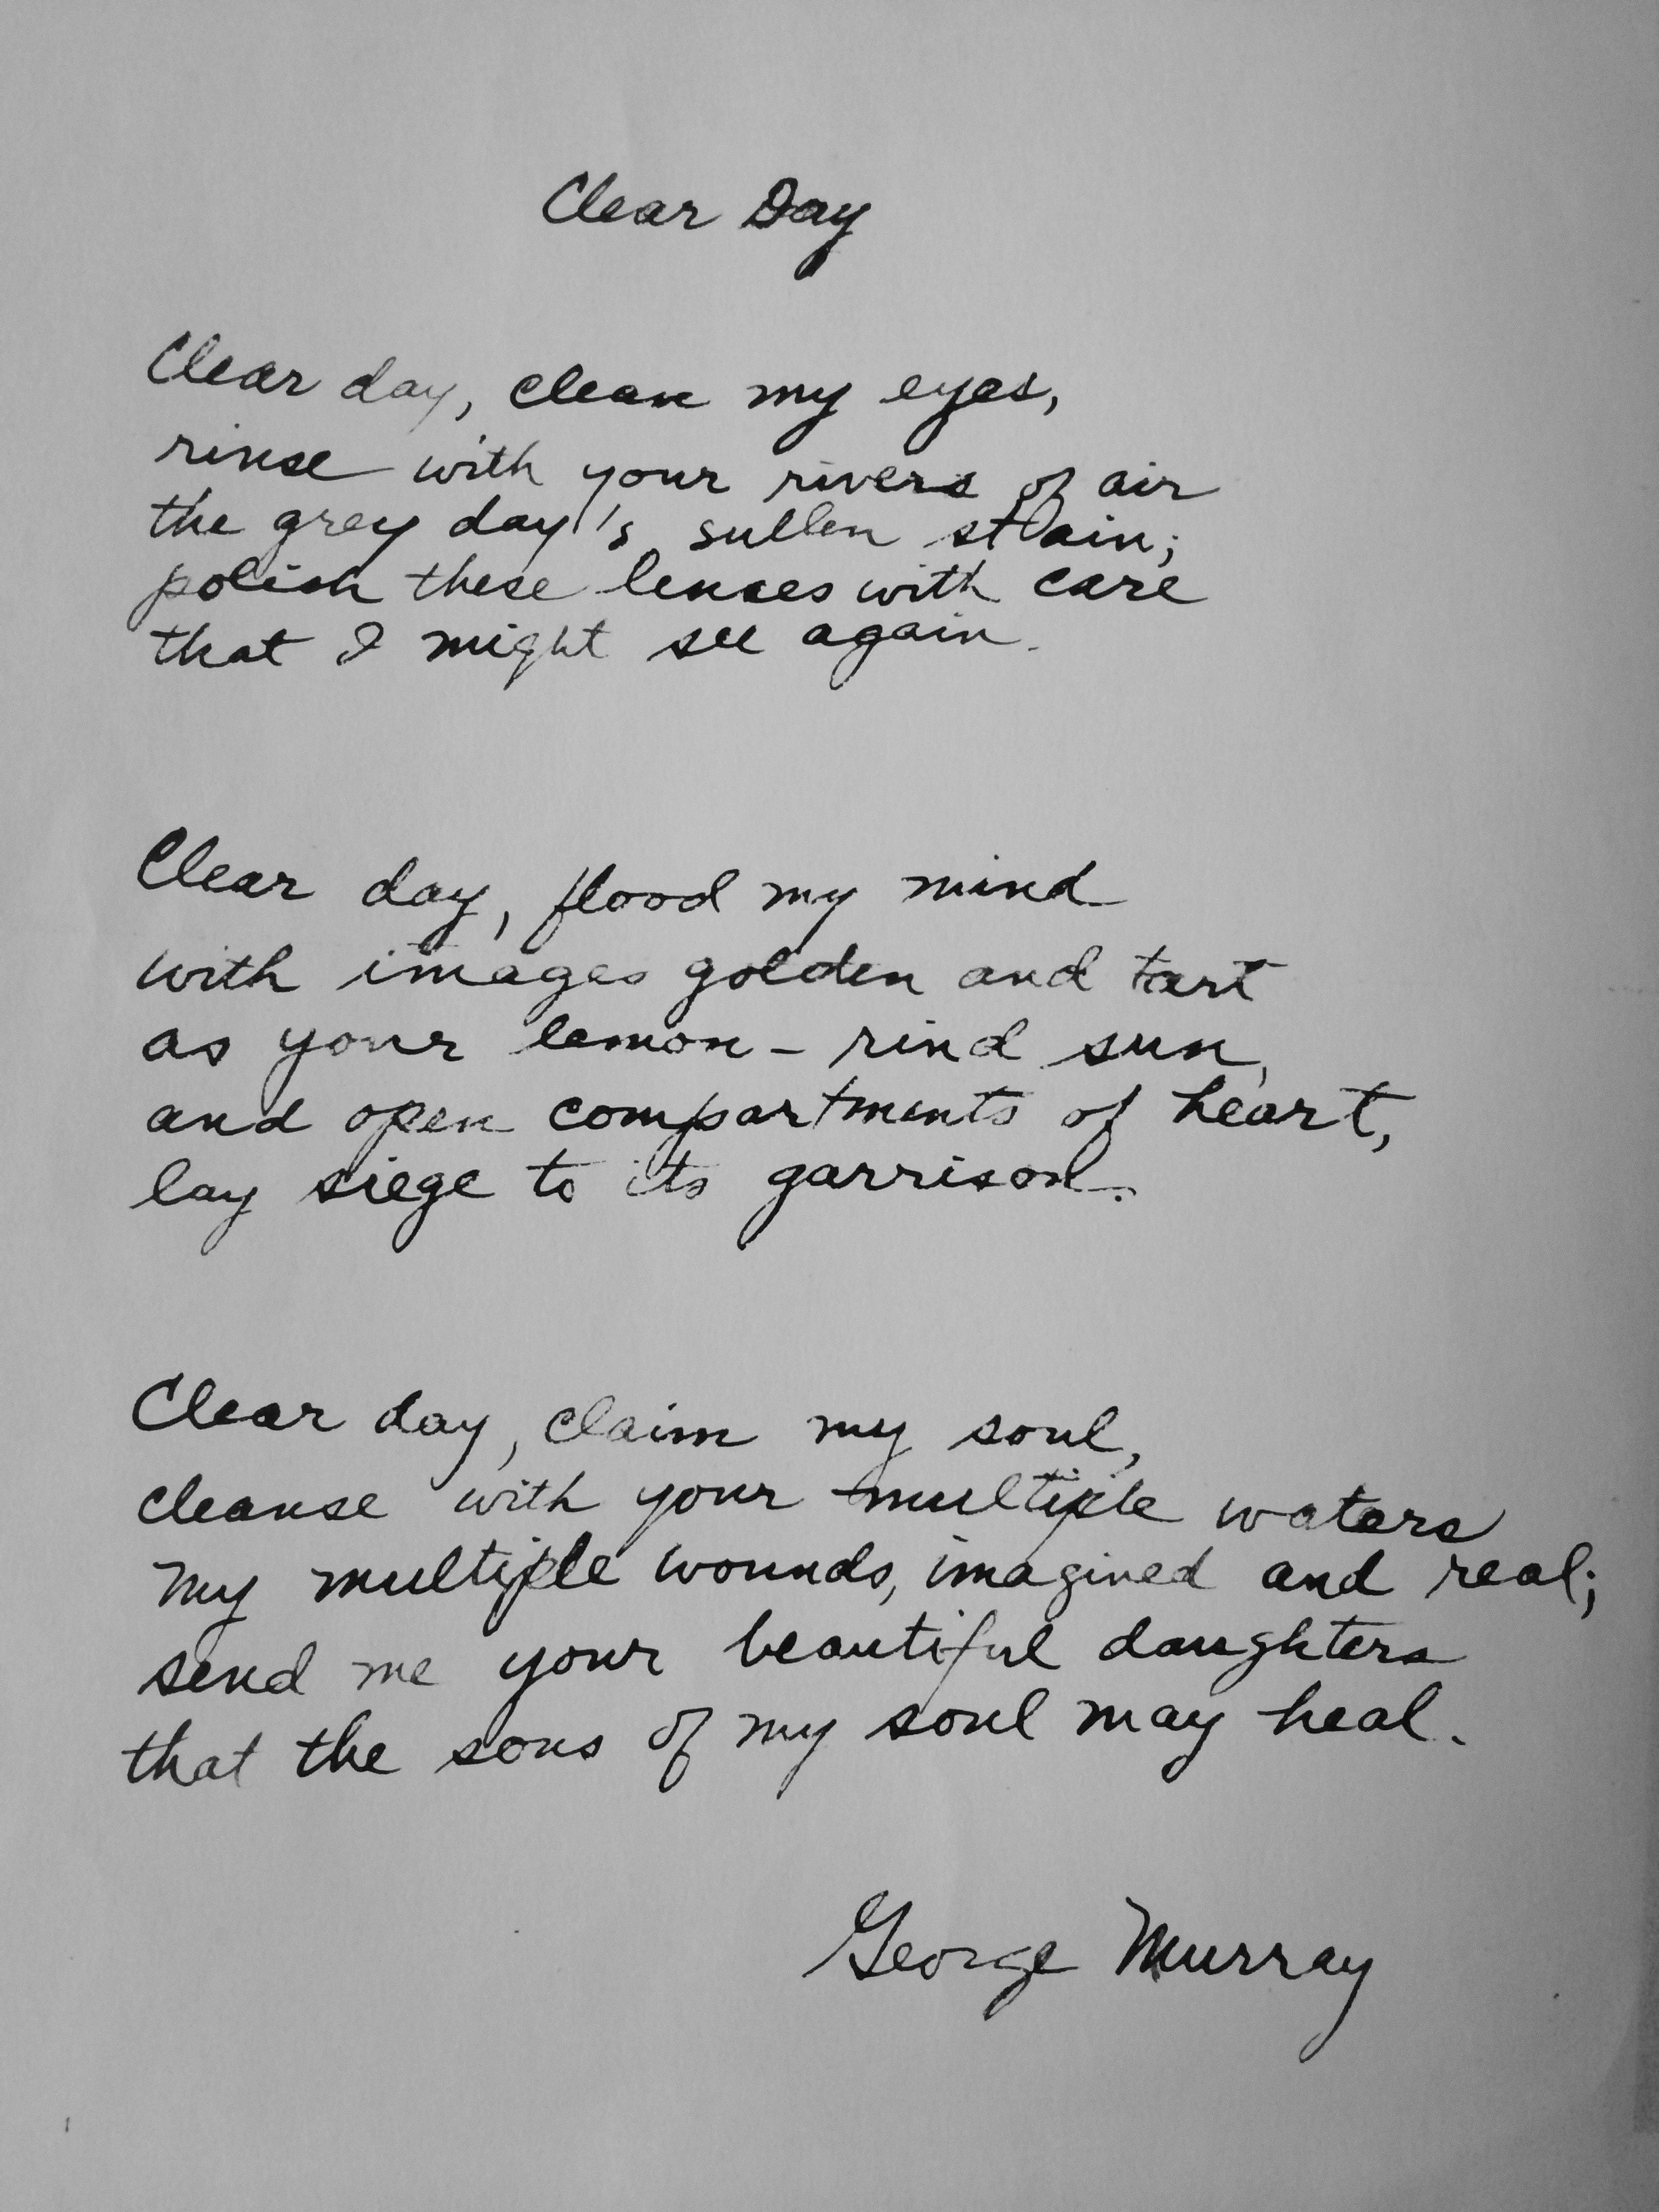 Clear Day
Clear day, clean my eyes,
rinse with your rivers of air
the grey day's sullen stain;
polish these lenses with care
that I might see again.
Clear day, flood my mind
with images golden and tart
as your lemon-rind sun,
and open compartments of heart,
lay siege to its garrison.
Clear day, claim my soul,
cleanse with your multiple waters
my multiple wounds, imagined and real;
send me your beautiful daughters
that the sons of my soul may heal.
George Murray